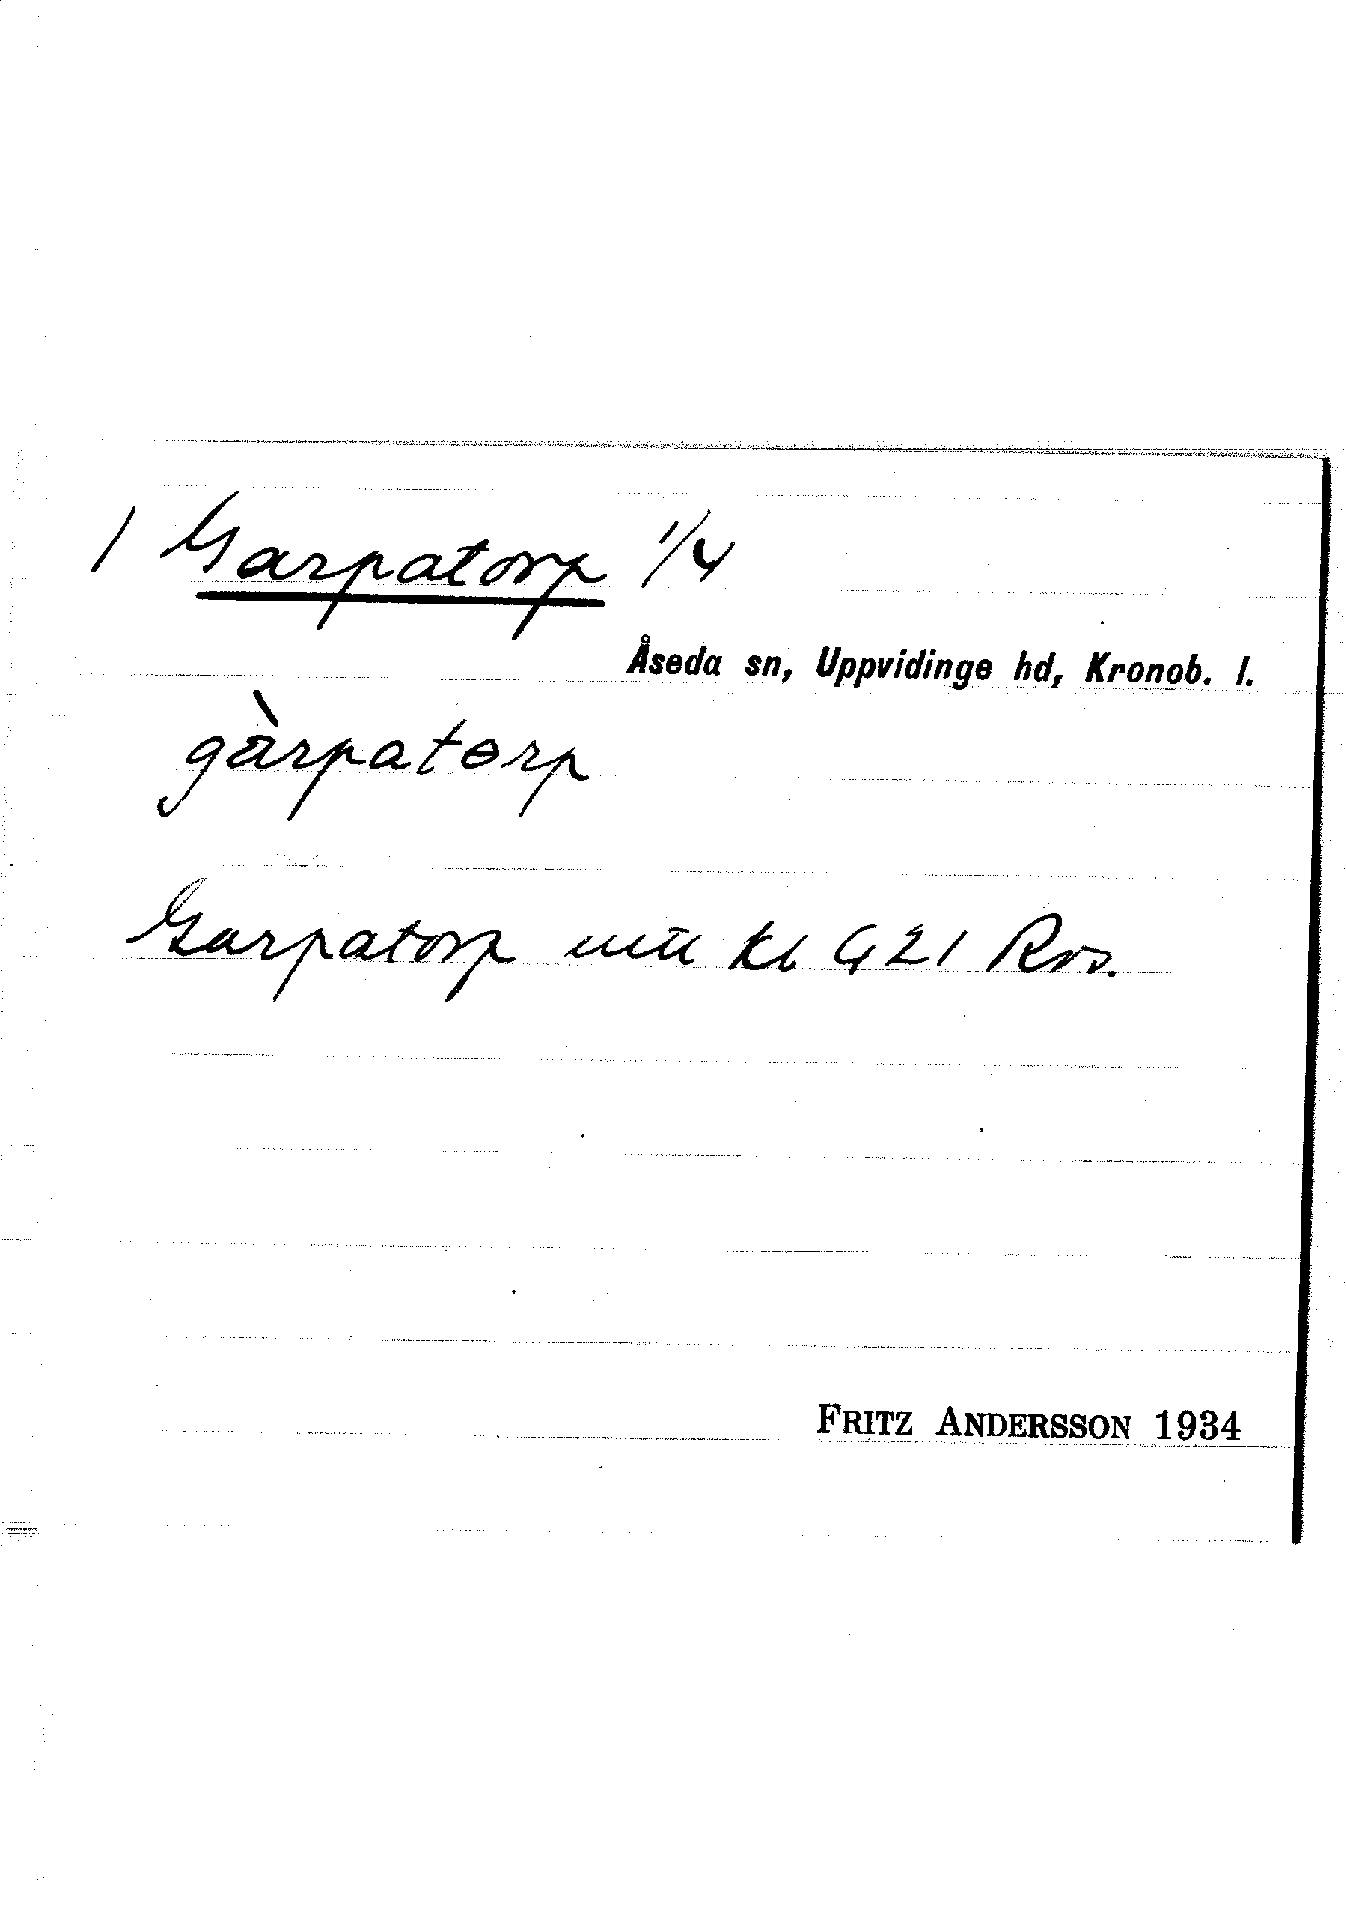 1 Garpatorp 1/4
Åseda sn, Uppvidinge hd, Kronob. l.
gàrpatɵrp
Garpatorp
FRITZ ANDERSSON 1934